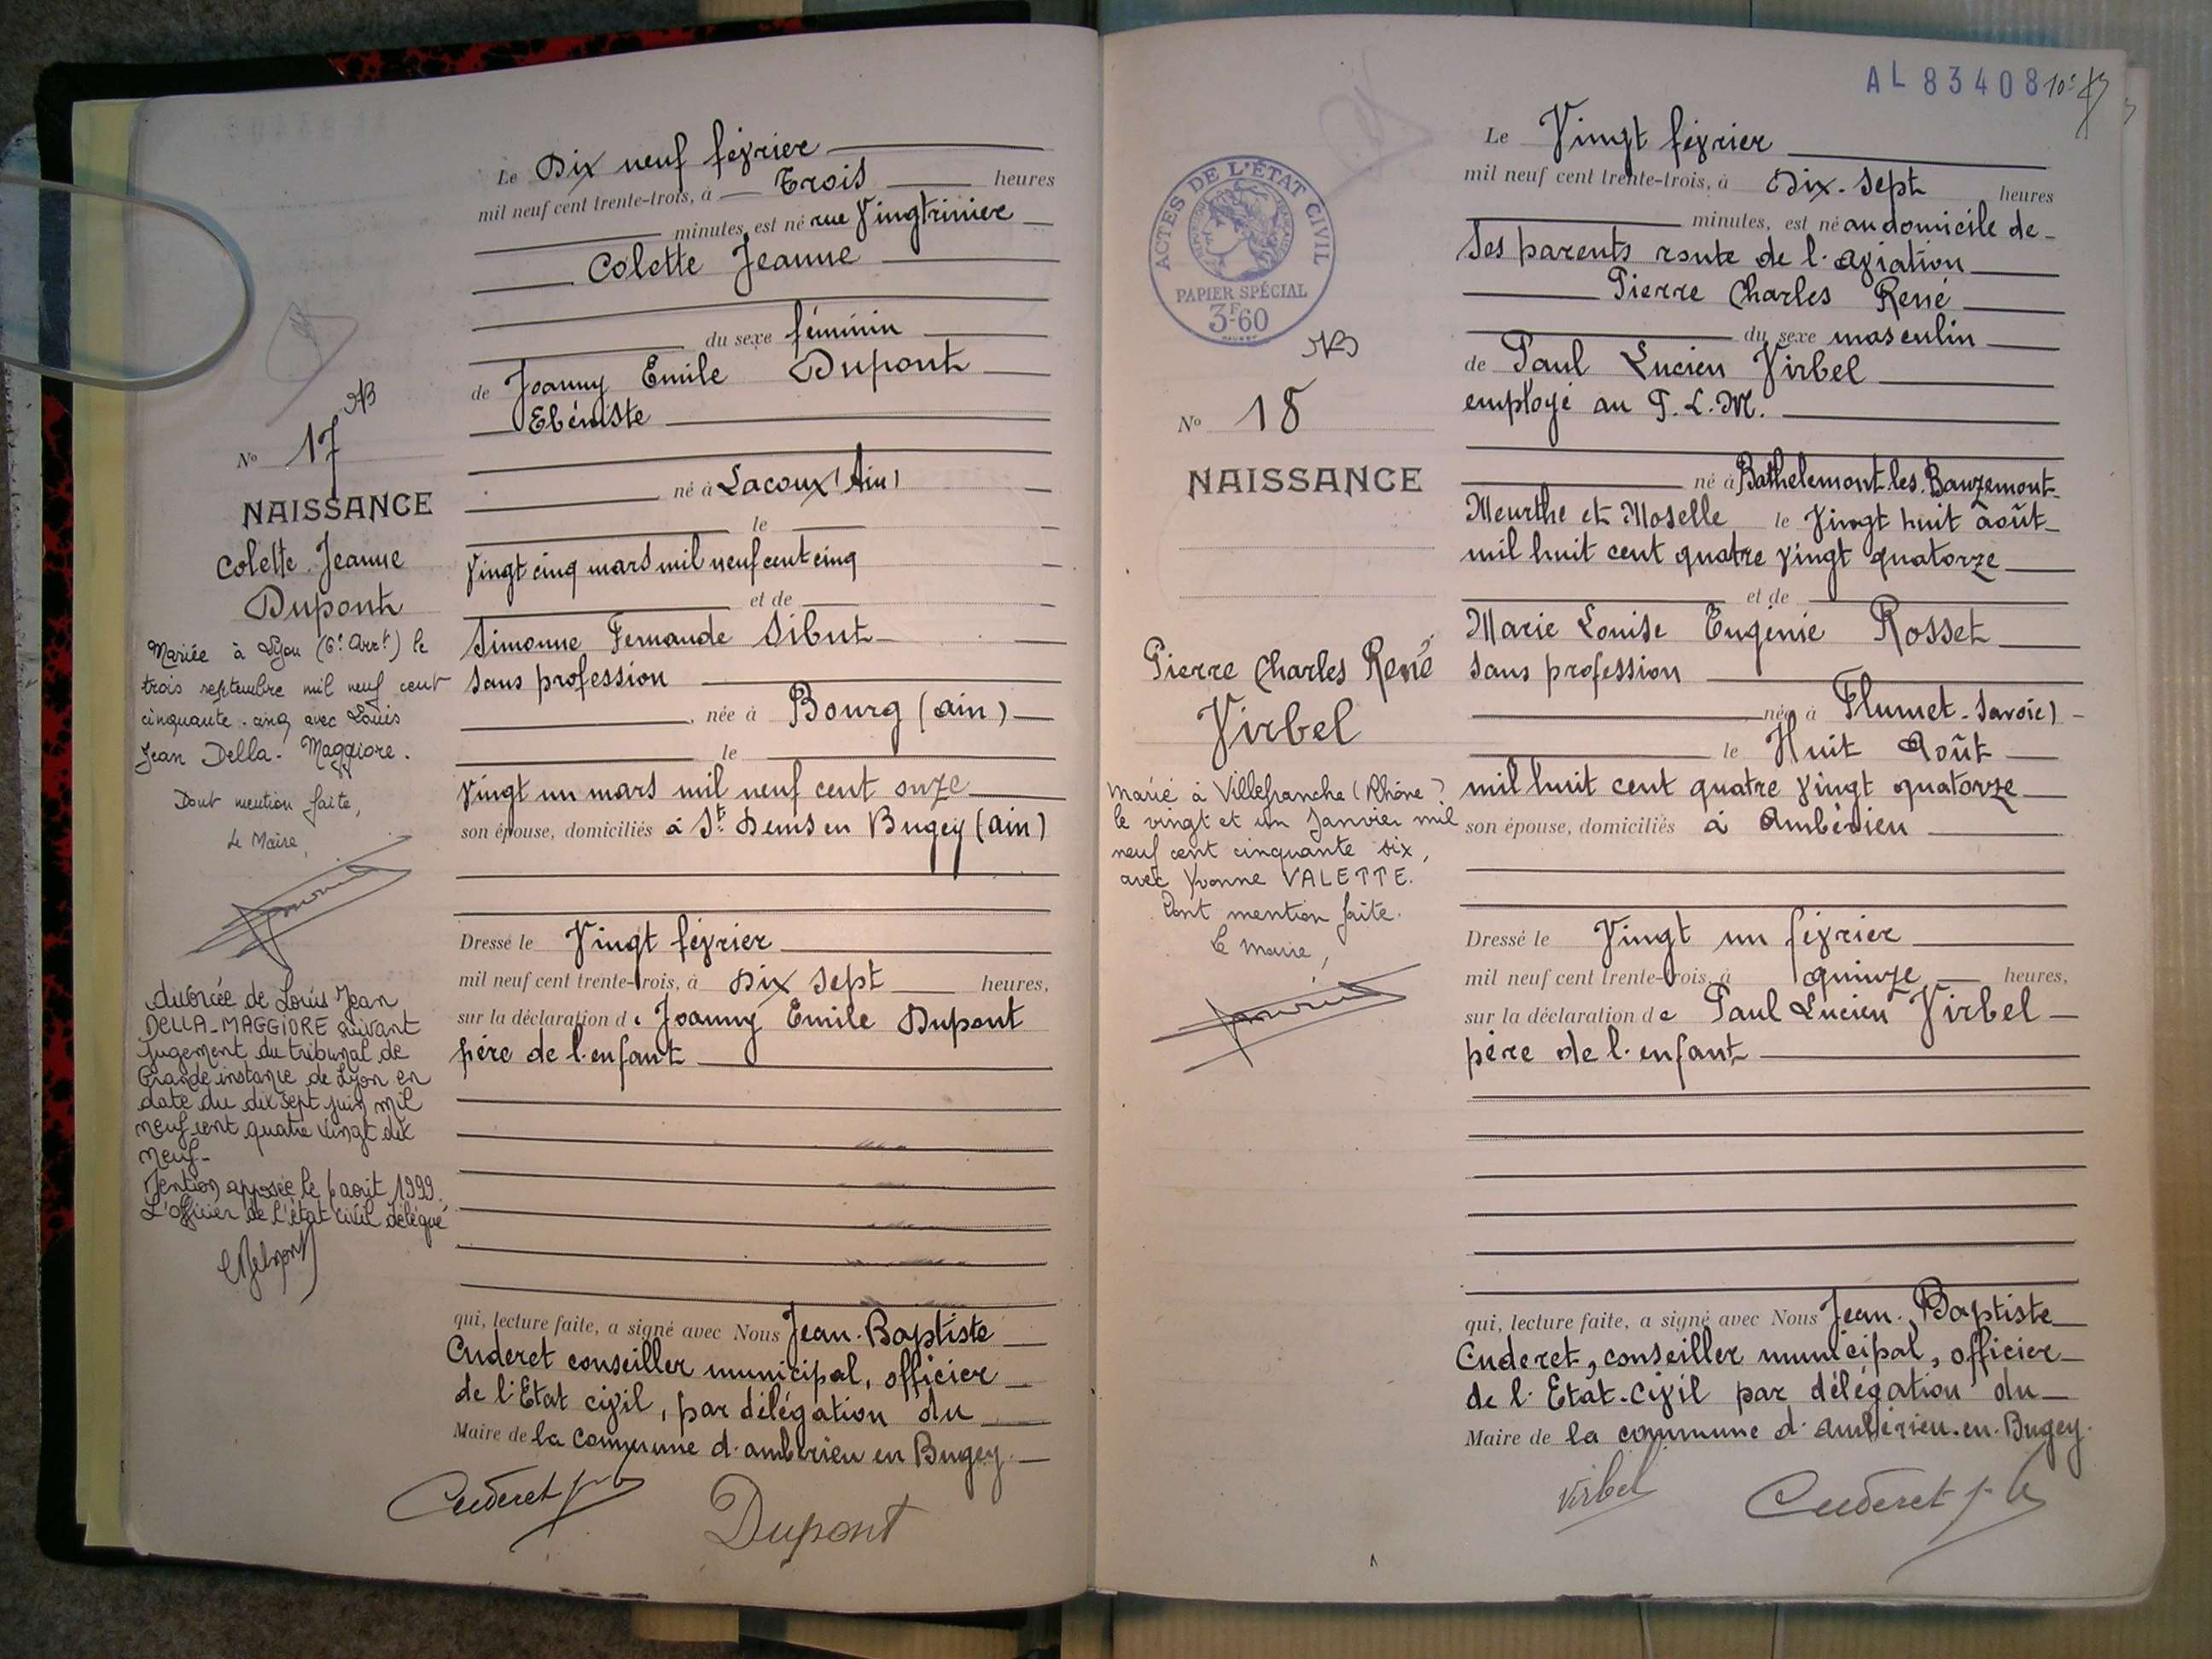 Le Dix neuf février
mil neuf cent trente-trois, à Trois heures
minutes, est né rue Vingtrinier
Colette Jeanne
du sexe féminin
de Joanny Emile Dupont
Ebéniste
né à Lacoux (Ain)
le
Vingt cinq mars mil neuf cent cinq
et de
Simonne Fernande Sibut
sans profession
, née à Bourg (ain)
le
Vingt un mars mil neuf cent onze
son épouse, domiciliés à St. Denis en Bugey (ain)
Dressé le Vingt février
mil neuf cent trente-trois, à Dix sept heures,
sur la déclaration de Joanny Emile Dupont
père de l'enfant
qui, lecture faite, a signé avec Nous Jean-Baptiste
Cuderet conseiller municipal, officier
de l'Etat civil, par délégation du
Maire de la commune d'ambérieu en Bugey.
Cuderet
Dupont
No 17
NAISSANCE
Colette Jeanne
Dupont
Mariée à Lyon (6e Arrt) le
trois septembre mil neuf cent
cinquante-cinq avec Louis
Jean Della-Maggiore.
Dont mention faite,
Le Maire,
divorcée de Louis Jean
DELLA-MAGGIORE suivant
jugement du tribunal de
Grande instance de Lyon en
date du dix sept juin mil
neuf cent quatre vingt dix
neuf-
Mention apposée le 6 août 1999.
L'officier de l'état civil délégué
AL 83408
ACTES DE L'ÉTAT CIVIL
PAPIER SPÉCIAL
3F60
No 18
NAISSANCE
Pierre Charles René
Virbel
Marié à Villefranche (Rhône)
le vingt et un Janvier mil
neuf cent cinquante six,
avec Yvonne VALETTE.
Dont mention faite.
Le Maire,
Le Vingt février
mil neuf cent trente-trois, à Dix-sept heures
minutes, est né au domicile de
ses parents route de l'aviation
Pierre Charles René
du sexe masculin
de Paul Lucien Virbel
employé au P.L.M.
né à Bathelemont-les-Bauzemont-
Meurthe et Moselle le Vingt huit août
mil huit cent quatre vingt quatorze
et de
Marie Louise Eugénie Rosset
sans profession
née à Flumet-Savoie)
le Huit Août
mil huit cent quatre vingt quatorze
son épouse, domiciliés à Ambérieu
Dressé le Vingt un février
mil neuf cent trente-trois, à quinze heures,
sur la déclaration de Paul Lucien Virbel
père de l'enfant
qui, lecture faite, a signé avec Nous Jean-Baptiste
Cuderet, conseiller municipal, officier
de l'Etat-civil par délégation du
Maire de la commune d'ambérieu-en-Bugey.
Virbel
Cuderet